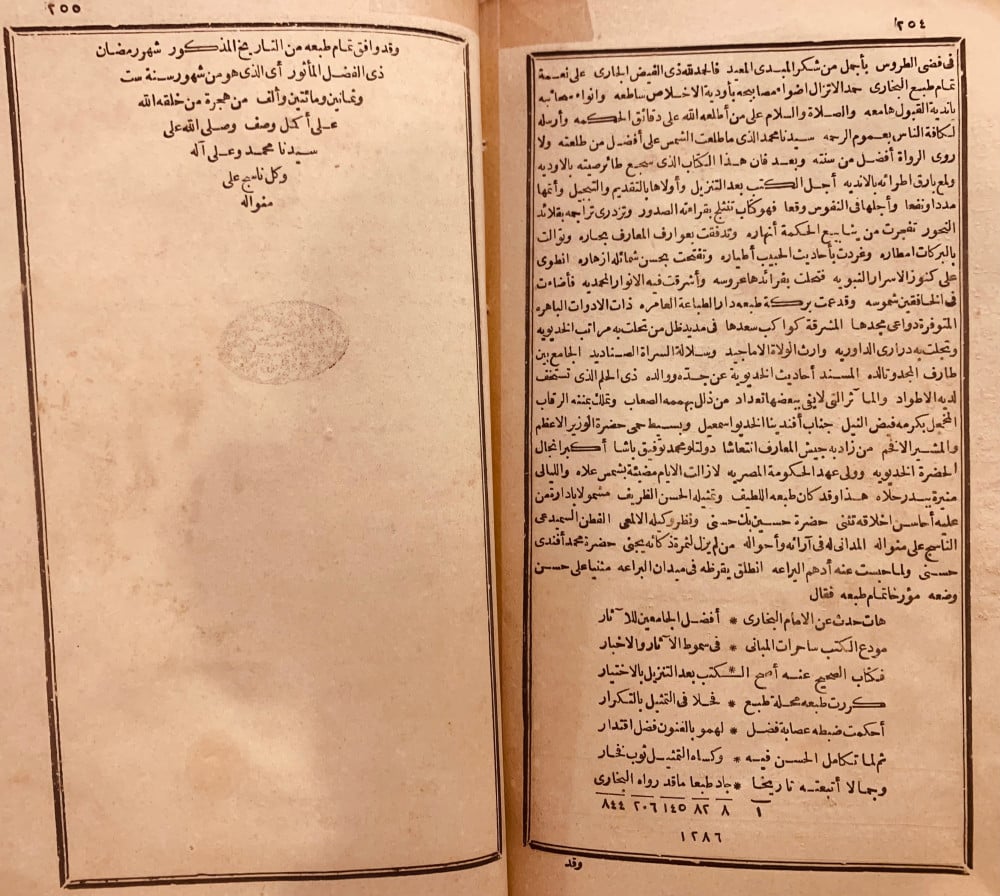 ٢٥٤
فى فضى الطروس بأجمل من شكر المبدى المعيد فالحمد لله ذى الفيض الجارى على نعمة
تمام طبع البخارى حمدا لاتزال اضواء مصابيحه بأودية الاخلاص ساطعه وانواء سحائبه
باندية القبول هامعه والصلاة والسلام على من أطلعه الله على دقائق الحكمه وأرسله
لكافة الناس بعموم الرحمه سيدنا محمد الذى ماطلعت الشمس على أفضل من طلعته ولا
روى الرواة أفضل من سنته وبعد فان هذا الكتاب الذى سجع طائرصيته بالاوديه
ولمع بارق اطرائه بالانديه أجل الكتب بعد التنزيل وأولاها بالتقديم والتبجيل وأتمها
مددا ونفعا وأجلها فى النفوس وقعا فهو كتاب تنثلج بقراءته الصدور وتزدرى تراجمه بقلائد
النحور تفجرت من ينابيع الحكمة أنهاره وتدفقت بعوارف المعارف بحاره وتوالت
بالبركات امطاره وغردت بأحاديث الحبيب أطياره وتفتحت بحسن شمائله ازهاره انطوى
على كنوز الاسرار النبويه فتحلت بفرائدها عروسه وأشرقت فيه الانوار المحمديه فأضاءت
فى الخافقين شموسه وقد عمت بركة طبعه دار الطباعة العامره ذات الادوات الباهره
المتوفرة دواعى مجدها المشرقة كواكب سعدها فى مديد ظل من تحلت به مراتب الخديويه
وتجلت به درارى الداوريه وارث الولاة الاماجيد وسلالة السراة الصناديد الجامع بين
طارف المجد وتالده المسند أحاديث الخديوية عن جده ووالده ذى الحلم الذى تستخف
لديه الاطواد والماآثر التى لايفى ببعضها تعداد من ذلل بهممه الصعاب وتملك بمننه الرقاب
المخجل بكرمه فيض النيل جناب أفندينا الخديو اسمعيل وبسيط حمى حضرة الوزير الاعظم
والمشير الافخم من زاد به جيش المعارف انتعاشا دولتلو محمد توفيق باشا أكبر انجال
الحضرة الخديويه وولى عهد الحكومة المصريه لازالت الايام مضيئة بشمس علاه والليالى
منيرة ببدر حلاه هذا وقد كان طبعه اللطيف وتمثيله الحسن الظريف مشمولا بادارة من
عليه أحاسن اخلاقه تثنى حضرة حسين بك حسنى ونظر وكيله الالمعى الفطن السميدعى
الناسج على منواله المدانى له فى آرائه وأحواله من لم يزل لثمرة ذكائه يجنى حضرة محمد أفندى
حسنى ولما حبست عنه أدهم اليراعه انطلق يقرظه فى ميدان البراعه مثنيا على حسن
وضعه مؤرخا تمام طبعه فقال
هات حدث عن الامام البخارى * أفضل الجامعين للآثار
مودع الكتب ساحرات المبانى * فى سموط الآثار والاخبار
فكتاب الصحيح عنه أصح الـكتب بعد التنزيل بالاختيار
كررت طبعه محلة طبع * فحلا فى التمثيل بالتكرار
أحكمت ضبطه عصابة فضل * لهمو بالفنون فضل اقتدار
ثم لما تكامل الحسن فيه * وكساه التمثيل ثوب فخار
وجمالا أتبعته تاريخا * جاد طبعا ماقد رواه البخارى
١ ٨ ٨٢ ١٤٥ ٢٠٦ ٨٤٤
١٢٨٦
وقد
٢٥٥
وقد وافق تمام طبعه من التاريخ المذكور شهر رمضان
ذى الفضل المأثور أى الذى هو من شهور سنة ست
وثمانين ومائتين وألف من هجرة من خلقه الله
على أكمل وصف وصلى الله على
سيدنا محمد وعلى آله
وكل ناسج على
منواله